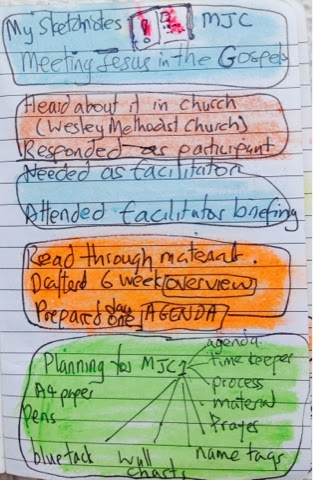 My Sketchnotes MJC
Meeting Jesus in the Gospels
Heard about it in church
(Wesley Methodist Church)
Responded as participant
Needed as facilitator
Attended facilitator briefing
Read through material.
Drafted 6 week overview
Prepared day one AGENDA
Planning for MJC1
agenda
time keeper
process
material
Prayer
name tags
A4 paper
Pens
bluetack
wall charts